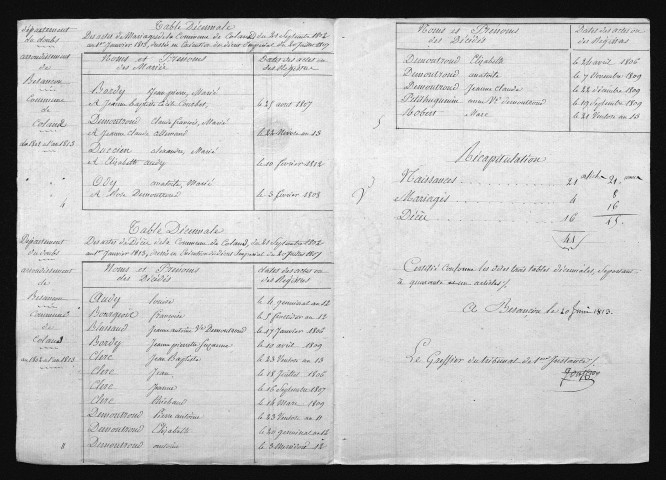 Département
du doubs
arrondissement
de
Besançon
Commune
de
Coland
an 1802 et an 1813
Table Décennale
Des actes de Mariages de la Commune de Coland, du 21 Septembre 1802
au 1er Janvier 1813, dressée en Exécution du décret Impérial du 20 Juillet 1807
Noms et Prénoms
des Mariés
Dates des actes ou
des Registres
Bordy Jean pierre, Marié
A Jeanne baptiste
le 25 avril 1807
Demontrond Claude francois, Marié
A Jeanne Claude allemand
le 22 Nivose an 13
alexandre, Marié
A Elizabeth audy
le 10 février 1812
Ody anatoile, Marié
A Demontrond
le 3 février 1808
4
Département
du doubs
arrondissement
de
Besançon
Commune
de
Coland
an 1802 et an 1813
Table Décennale
Des actes de Décès de la Commune de Coland, du 21 Septembre 1802
au 1er Janvier 1813, dressée en Exécution du décret Impérial du 20 Juillet 1807
Noms et Prénoms
des Décédés
dates des actes ou
des Registres
Audy Louise le 6 germinal an 12
Bourgeois francoise le 5 février an 12
Jeanne antoine Ve Demontrond le 17 Janvier 1806
Bordy Jeanne pierrette Suzanne le 10 avril 1809
Clerc Jean Baptiste le 23 Ventose an 13
Clerc Jean le 18 Juillet 1806
Clerc Jeanne le 16 Septembre 1807
Clerc Thiébaud le 14 Mars 1809
Demontrond Pierre antoine le 23 Ventose an 11
Demontrond Elizabeth le 20 germinal an 12
Demontrond antoine le 3 Messidor 12
8
Noms et Prénoms
des Décédés
Dates des actes ou
des Registres
Demontrond Elizabeth le 24 avril 1806
Demontrond anatoile le 7 Novembre 1809
Demontrond Jeanne Claude le 28 décembre 1809
Petithuguenin anne Ve Demontrond le 19 Septembre 1809
Robert Marc le 21 Ventose an 13
5
Récapitulation
Naissances 21 articles 21 noms
Mariages 4 8
Décès 16 16
41 45
Certifié Conforme les dites trois tables décennales,
à quarante et un articles /.
A Besançon le 20 Juin 1813.
Le Greffier du tribunal de 1ere Instance /.